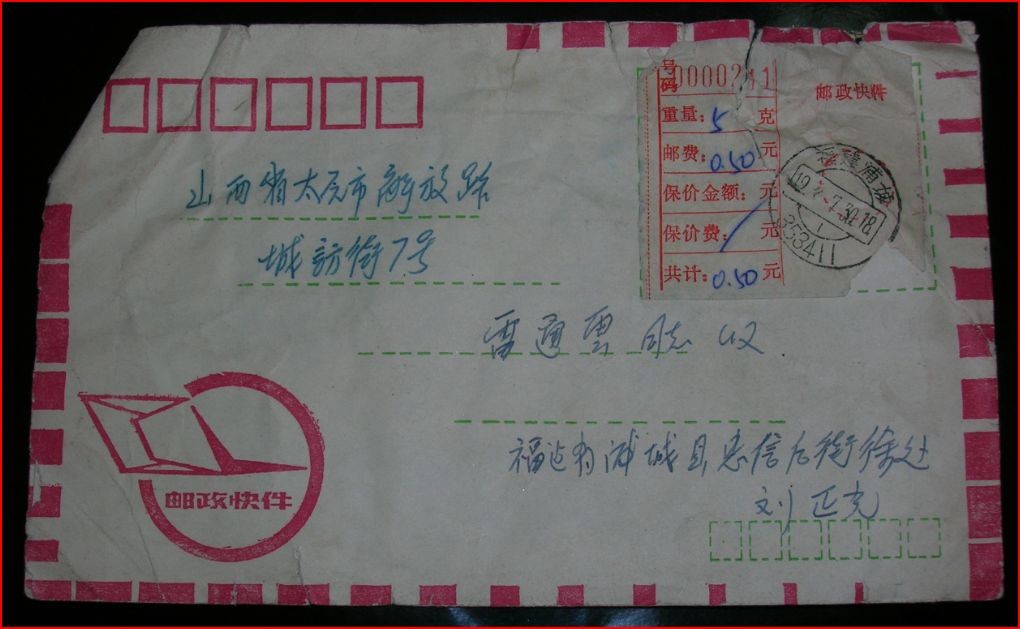 号码 0000241
邮政快件
重量: 5 克
邮费: 0.50 元
保价金额: 元
保价费: 元
共计: 0.50 元
福建浦城
353411
山西省太原市解放路
城訪街7号
雷通云 同志 收
福建省浦城县忠信后街
刘正光
邮政快件